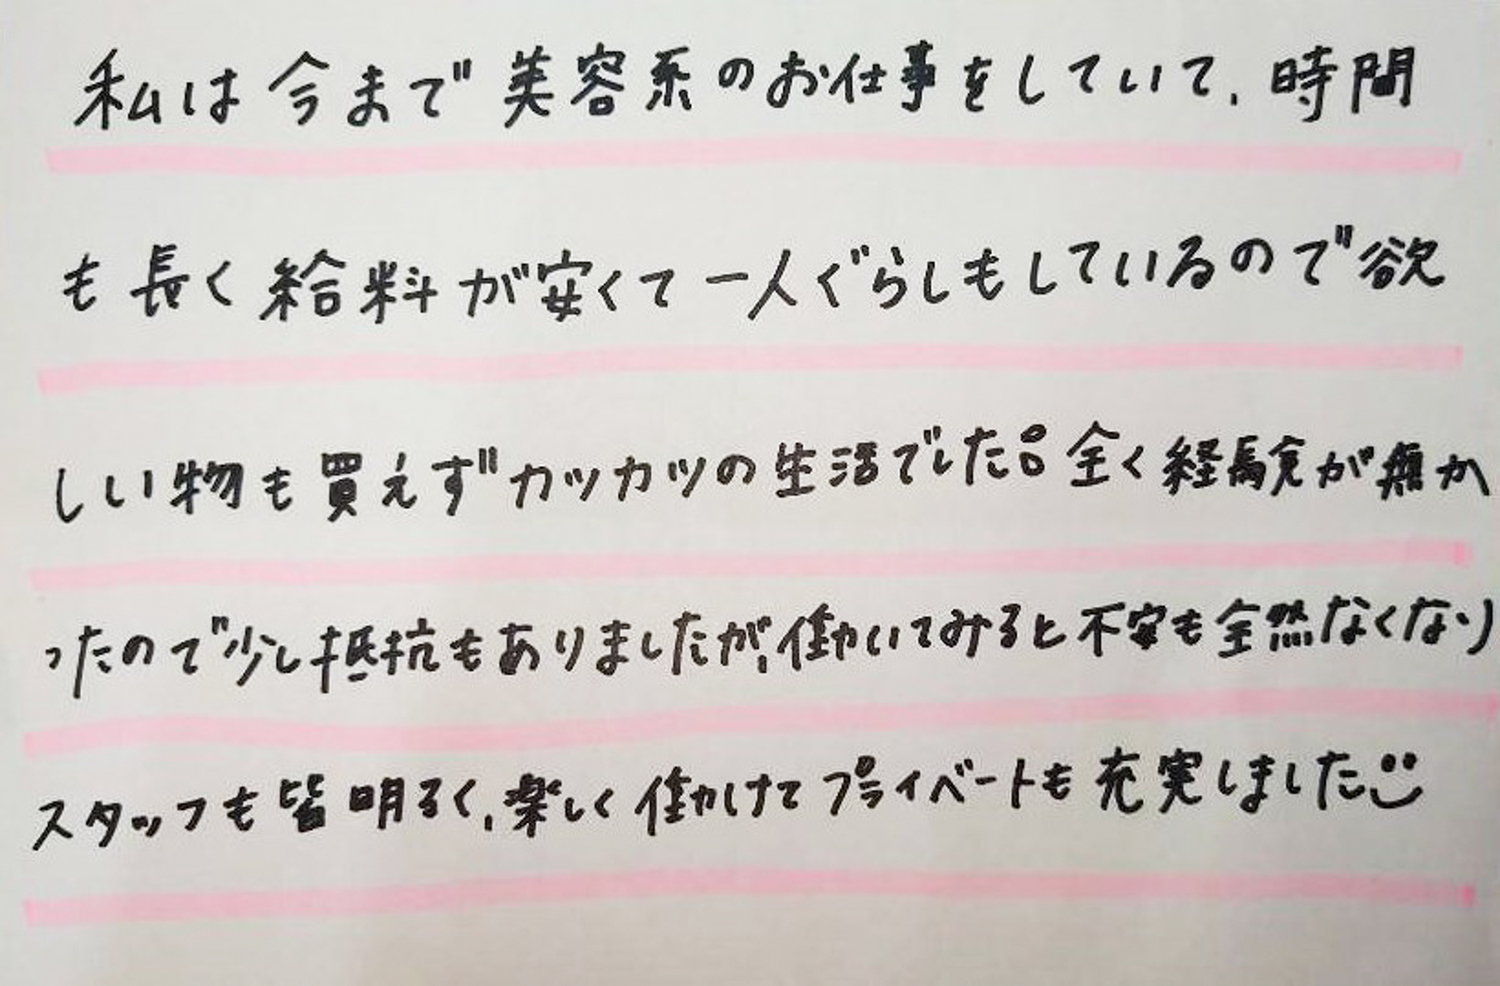 私は今まで美容系のお仕事をしていて、時間
も長く給料が安くて一人ぐらしもしているので欲
しい物も買えずカツカツの生活でした。全く経験が無か
ったので少し抵抗もありましたが、働いてみると不安も全然なくなり
スタッフも皆明るく、楽しく働けてプライベートも充実しました